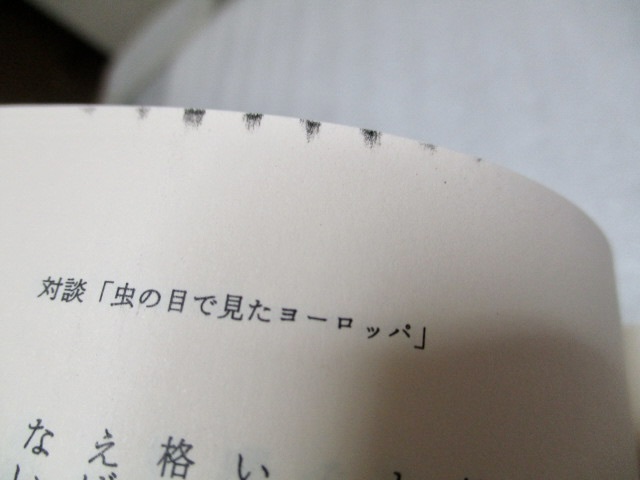 対談「虫の目で見たヨーロッパ」
い
格
え
な